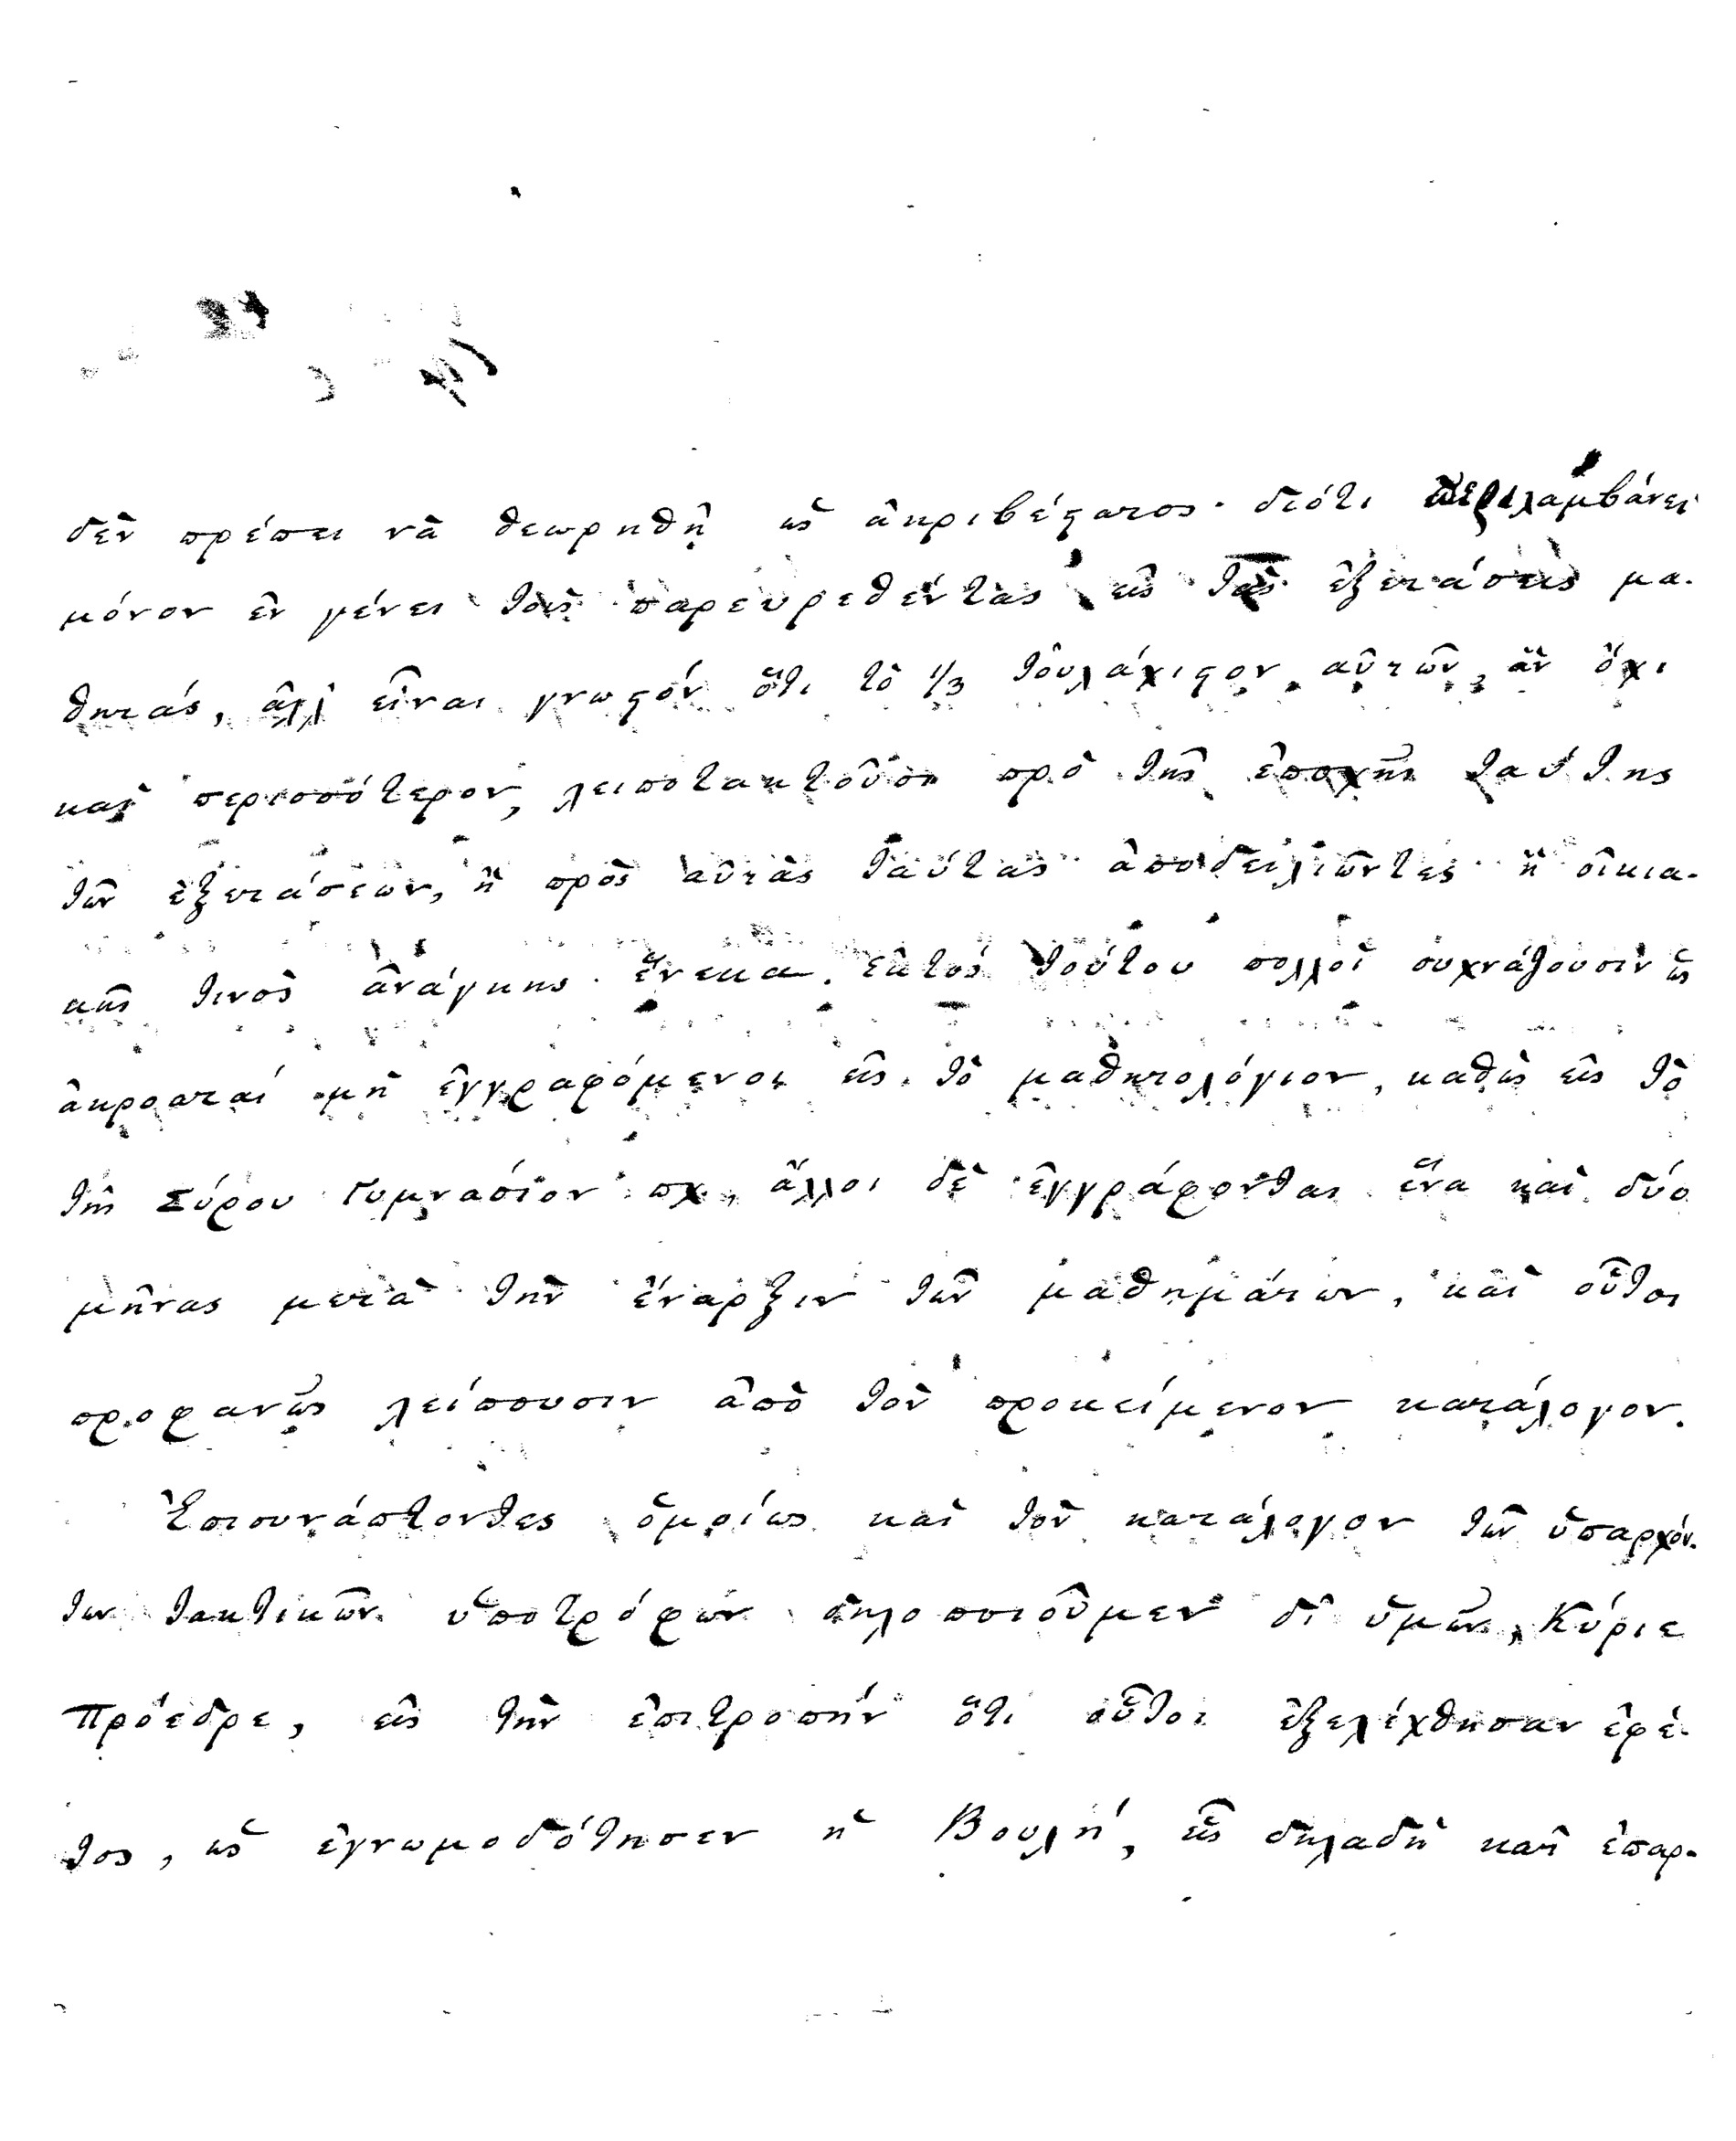 δὲν πρέπει νὰ θεωρηθῇ ὡς ἀκριβέστατος· διότι περιλαμβάνει
μόνον ἐν γένει τοὺς παρευρεθέντας εἰς τὰς ἐξετάσεις μα-
θητάς, ἀλλ' εἶναι γνωστόν ὅτι τὸ 1/3 τοὐλάχιστον αὐτῶν, ἂν ὄχι
καὶ περισσότερον, λειποτακτοῦσι πρὸ τῆς ἐποχῆς ταύτης
τῶν ἐξετάσεων, ἢ πρὸς αὐτὰς ταύτας ἀποδειλιῶντες ἢ οἰκια-
κῆς τινος ἀνάγκης ἕνεκα. ἐκτὸς τούτου πολλοὶ συχνάζουσιν ὡς
ἀκροαταί μὴ ἐγγραφόμενοι εἰς τὸ μαθητολόγιον, καθὼς εἰς τὸ
τῆς Σύρου Γυμνασίον πχ, ἄλλοι δὲ ἐγγράφονται ἕνα καὶ δύο
μῆνας μετὰ τὴν ἔναρξιν τῶν μαθημάτων, καὶ οὗτοι
προφανῶς λείπουσιν ἀπὸ τὸν προκείμενον κατάλογον.
Ἐπισυνάπτοντες ὁμοίως καὶ τὸν κατάλογον τῶν ὑπαρχόν-
των τακτικῶν ὑποτρόφων δηλοποιοῦμεν δι' ὑμῶν, Κύριε
Πρόεδρε, εἰς τὴν ἐπιτροπήν ὅτι οὗτοι ἐξελέχθησαν ἐφέ-
τος, ὡς ἐγνωμοδότησεν ἡ Βουλή, εἷς δηλαδὴ κατ' ἐπαρ-